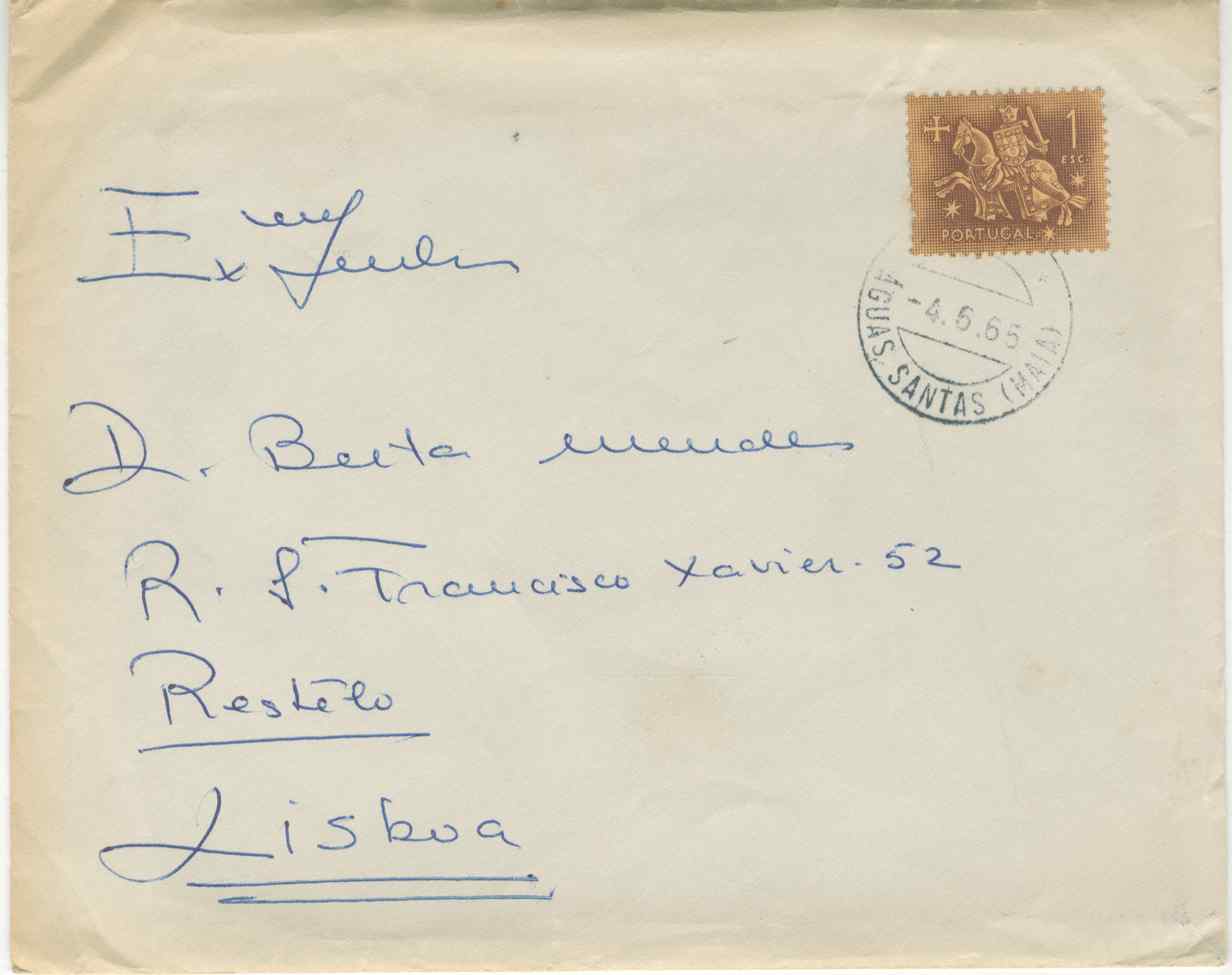 1
ESC.
PORTUGAL
-4.6.65
ÁGUAS SANTAS (MAIA)
Ex
D. Berta Mendes
R. S. Francisco Xavier. 52
Restêlo
Lisboa